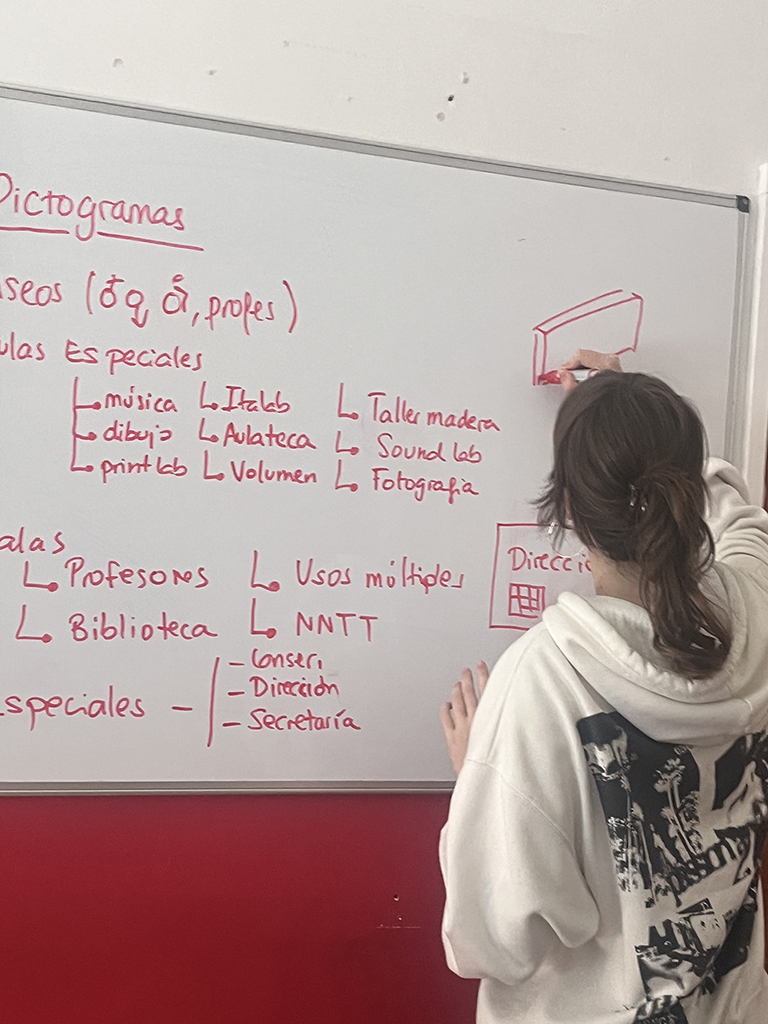 Pictogramas
seos (♂♀, profes)
ulas Especiales
música
Italab
Taller madera
dibujo
Aulateca
Sound lab
printlab
Volumen
Fotografia
alas
Profesores
Usos múltiples
Biblioteca
NNTT
Especiales
- Conseri
- Dirección
- Secretaría
Direcci